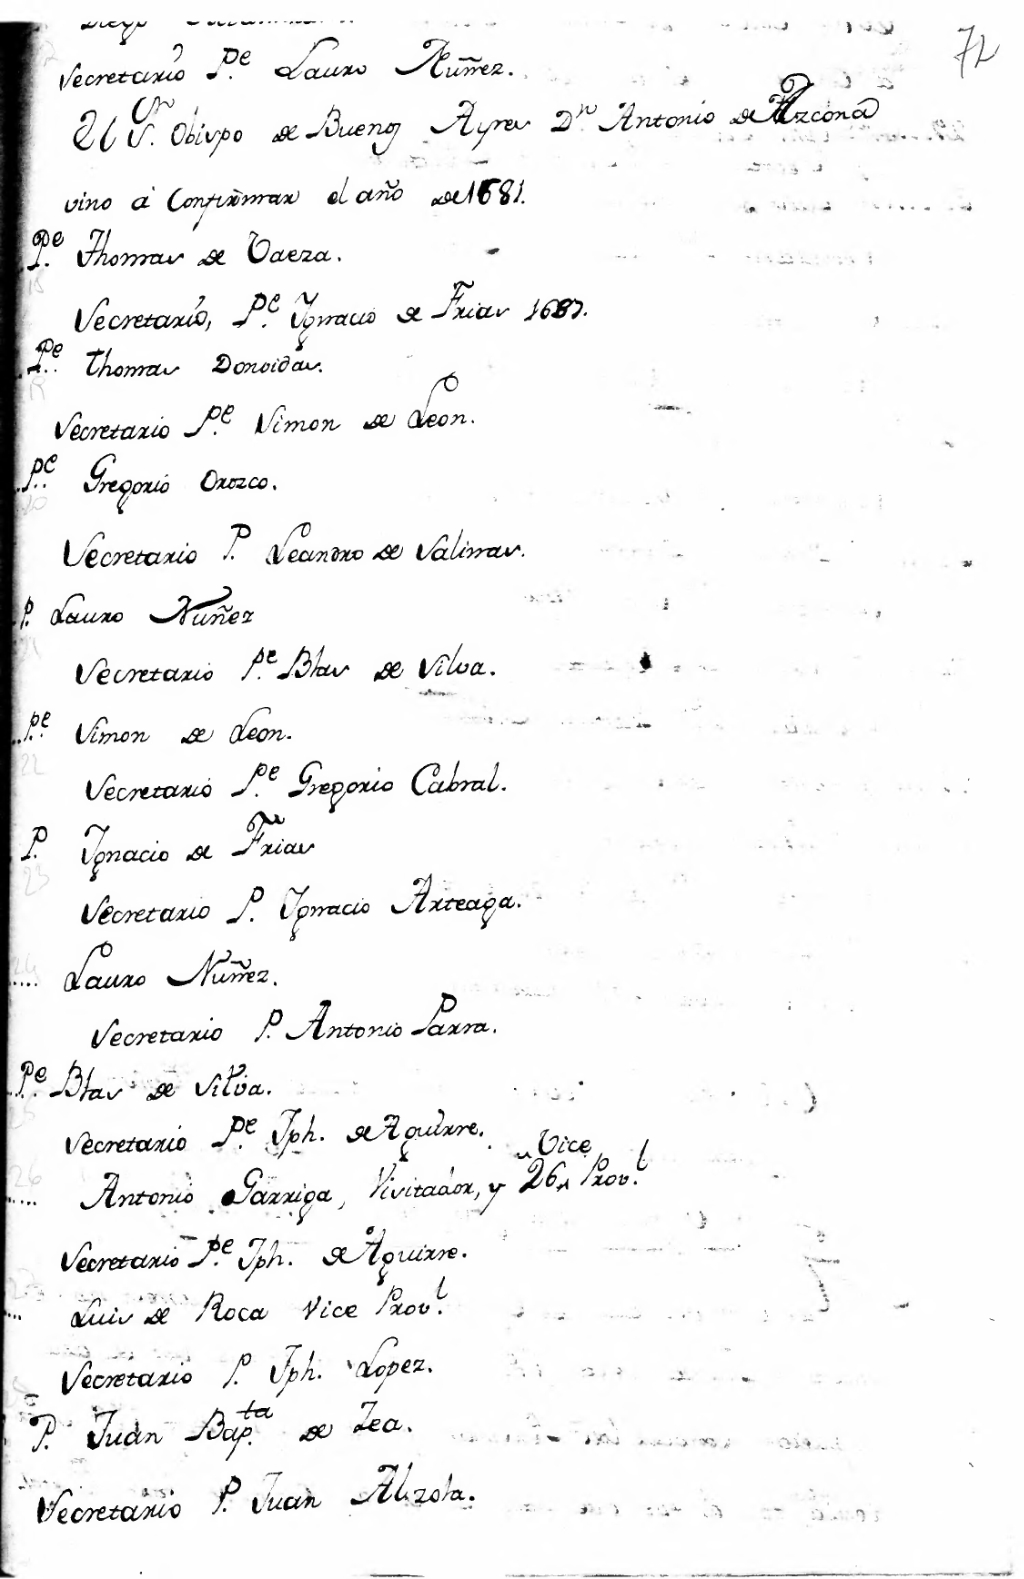 72
Diego
Secretario P.e Lauro Nuñez.
El S.or Obispo de Buenos Ayres D.n Antonio de Azcona
vino à Confirmar el año de 1681.
P.e Thomas de Baeza.
18
Secretario, P.e Ignacio de Frias 1687.
P.e Thomas Donvidas.
19
Secretario P.e Simon de Leon.
P.e Gregorio Orozco.
20
Secretario P. Leandro de Salinas.
P. Lauro Nuñez
21
Secretario P.e Blas de Silva.
P.e Simon de Leon.
22
Secretario P.e Gregorio Cabral.
P. Ignacio de Frias
23
Secretario P. Ignacio Arteaga.
24
Lauro Nuñez.
Secretario P. Antonio Parra.
P.e Blas de Silva.
25
Secretario P.e Jph. de Aguirre.
Vice
26
Antonio Garriga, Visitador, y 26 Prov.l
Secretario P.e Jph. de Aguirre.
27
Luis de Roca Vice Prov.l
Secretario P. Jph. Lopez.
P. Juan Bap.ta de Zea.
Secretario P. Juan Alzola.